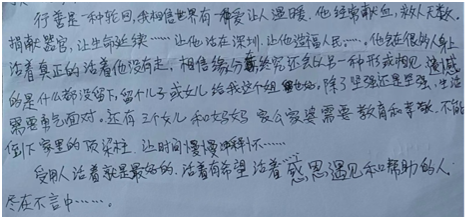 行善是一种轮回,我相信世界有一种爱让人温暖。他经常献血,救人无数,
捐献器官,让生命延续……让他活在深圳.让他造福人民……,他会在很多人身上
活着真正的活着他没有走,相信缘分最终究还会以另一种形式相见 遗感
的是什么都没留下,留个儿子或女儿给我这个姐 .除了坚强还是坚强,生活
需要勇气面对,还有三个女儿和妈妈 家公家婆需要教育和孝敬,不能
倒下 家里的顶梁柱.让时间慢慢冲释怀……
爱的人活着就是最好的.活着有希望 活着 感恩遇见和帮助的人,
尽在不言中……。